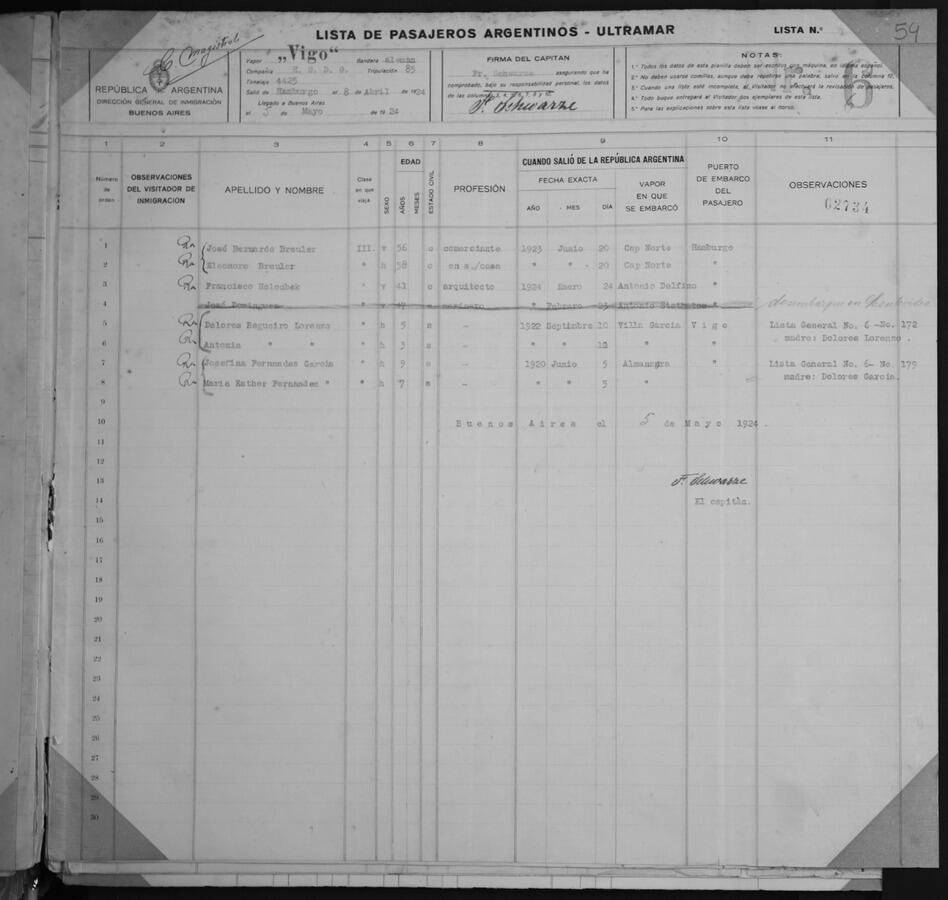 LISTA DE PASAJEROS ARGENTINOS - ULTRAMAR
LISTA N.º 54
REPÚBLICA ARGENTINA
DIRECCIÓN GENERAL DE INMIGRACIÓN
BUENOS AIRES
Vapor „Vigo“ Bandera alemán
Compañía H. S. D. G. Tripulación 85
Tonelaje 4425
Salió de Hamburgo el 8 de Abril de 1924
Llegado a Buenos Aires
el 5 de Mayo de 1924
FIRMA DEL CAPITAN
Fr. Schwarze asegurando que ha
comprobado, bajo su responsabilidad personal, los datos
de las columnas
F. Schwarze
NOTAS
1.ª Todos los datos de esta planilla deben ser escritos con máquina, en idioma español.
2.ª No deben usarse comillas, aunque deba repetirse una palabra, salvo la columna 10.
3.ª Cuando una lista esté incompleta, el Visitador no efectuará la revisación de pasajeros.
4.ª Todo buque entregará al Visitador dos ejemplares de esta lista.
5.ª Para las explicaciones sobre esta lista véase al dorso.
1 2 3 4 5 6 7 8 9 10 11
Número de orden
OBSERVACIONES DEL VISITADOR DE INMIGRACION
APELLIDO Y NOMBRE
Clase en que viaja
SEXO
EDAD
AÑOS
MESES
ESTADO CIVIL
PROFESIÓN
CUANDO SALIÓ DE LA REPÚBLICA ARGENTINA
FECHA EXACTA
AÑO MES DÍA
VAPOR EN QUE SE EMBARCÓ
PUERTO DE EMBARCO DEL PASAJERO
OBSERVACIONES
02734
1 José Bernardo Breuler III. v 56 c comerciante 1923 Junio 20 Cap Norte Hamburgo
2 Eleonore Breuler " h 58 c en s./casa " " 20 Cap Norte "
3 Francisco Holoubek " v 41 c arquitecto 1924 Enero 24 Antonio Delfino "
4 José Dominguez " v 47 c marinero " Febrero 23 Antonio "
desembarque en Montevideo
5 Dolores Regueiro Lorenzo " h 5 s - 1922 Septimbre 10 Villa Garcia Vigo Lista General No. 6 -No. 172
6 Antonia " " " h 3 s - " " " " madre: Dolores Lorenzo .
7 Josefina Fernandez Garcia " h 9 s - 1920 Junio 5 Almanzora " Lista General No. 6- No. 179
8 Maria Esther Fernandez " " h 7 s - " " 5 " " madre: Dolores Garcia.
9
10 Buenos Aires el 5 de Mayo 1924.
11
12
13 F. Schwarze
14 El capitán.
15
16
17
18
19
20
21
22
23
24
25
26
27
28
29
30